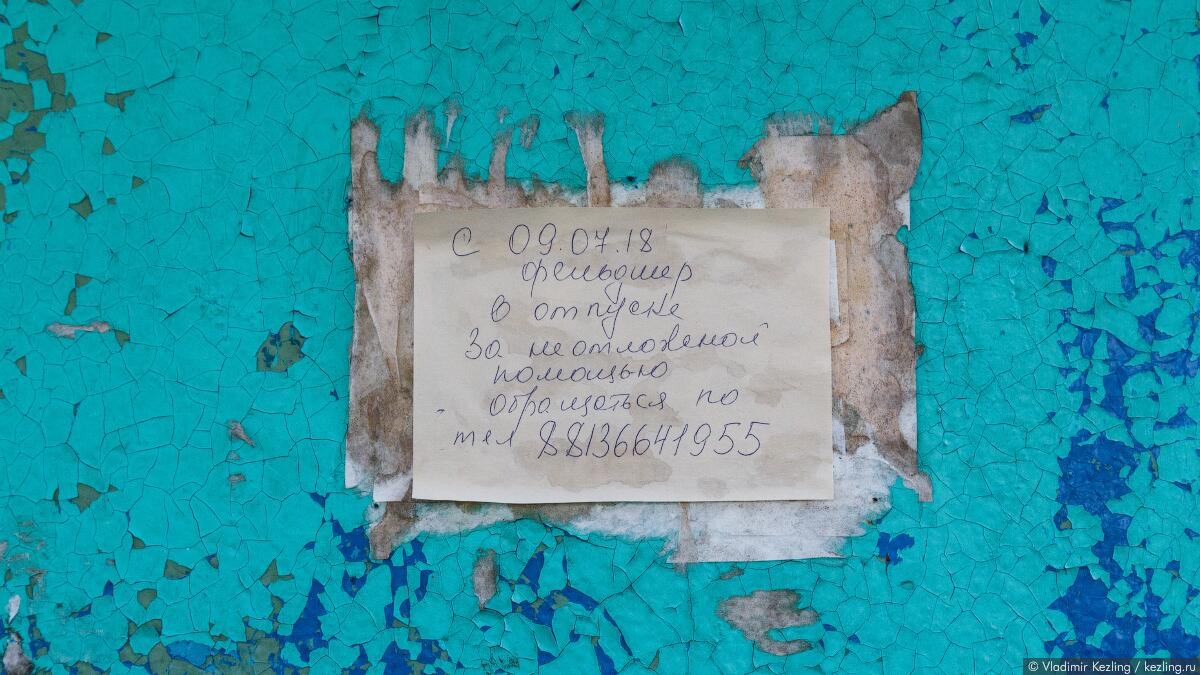 С 09.07.18
фельдшер
в отпуске
За неотложеной
помощью
обращаться по
тел 88136641955
© Vladimir Kezling / kezling.ru